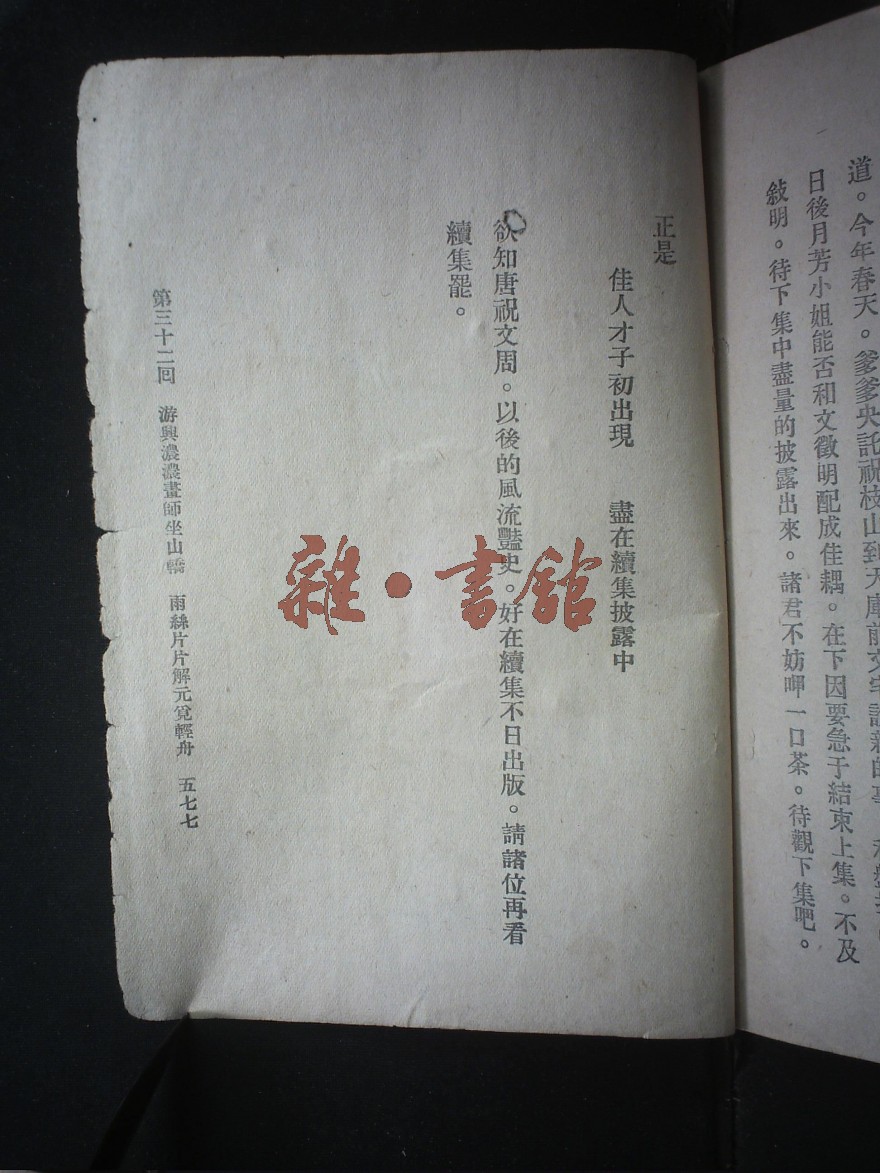 道。今年春天。爹爹央託祝枝山到天庫前文宅
日後月芳小姐能否和文徵明配成佳耦。在下因要急于結束上集。不及
敍明。待下集中盡量的披露出來。諸君不妨呷一口茶。待觀下集吧。
正是
佳人才子初出現 盡在續集披露中
欲知唐祝文周。以後的風流豔史。好在續集不日出版。請諸位再看
續集罷。
第三十二回 游興濃濃畫師坐山轎 雨絲片片解元覓輕舟 五七七
雜·書館